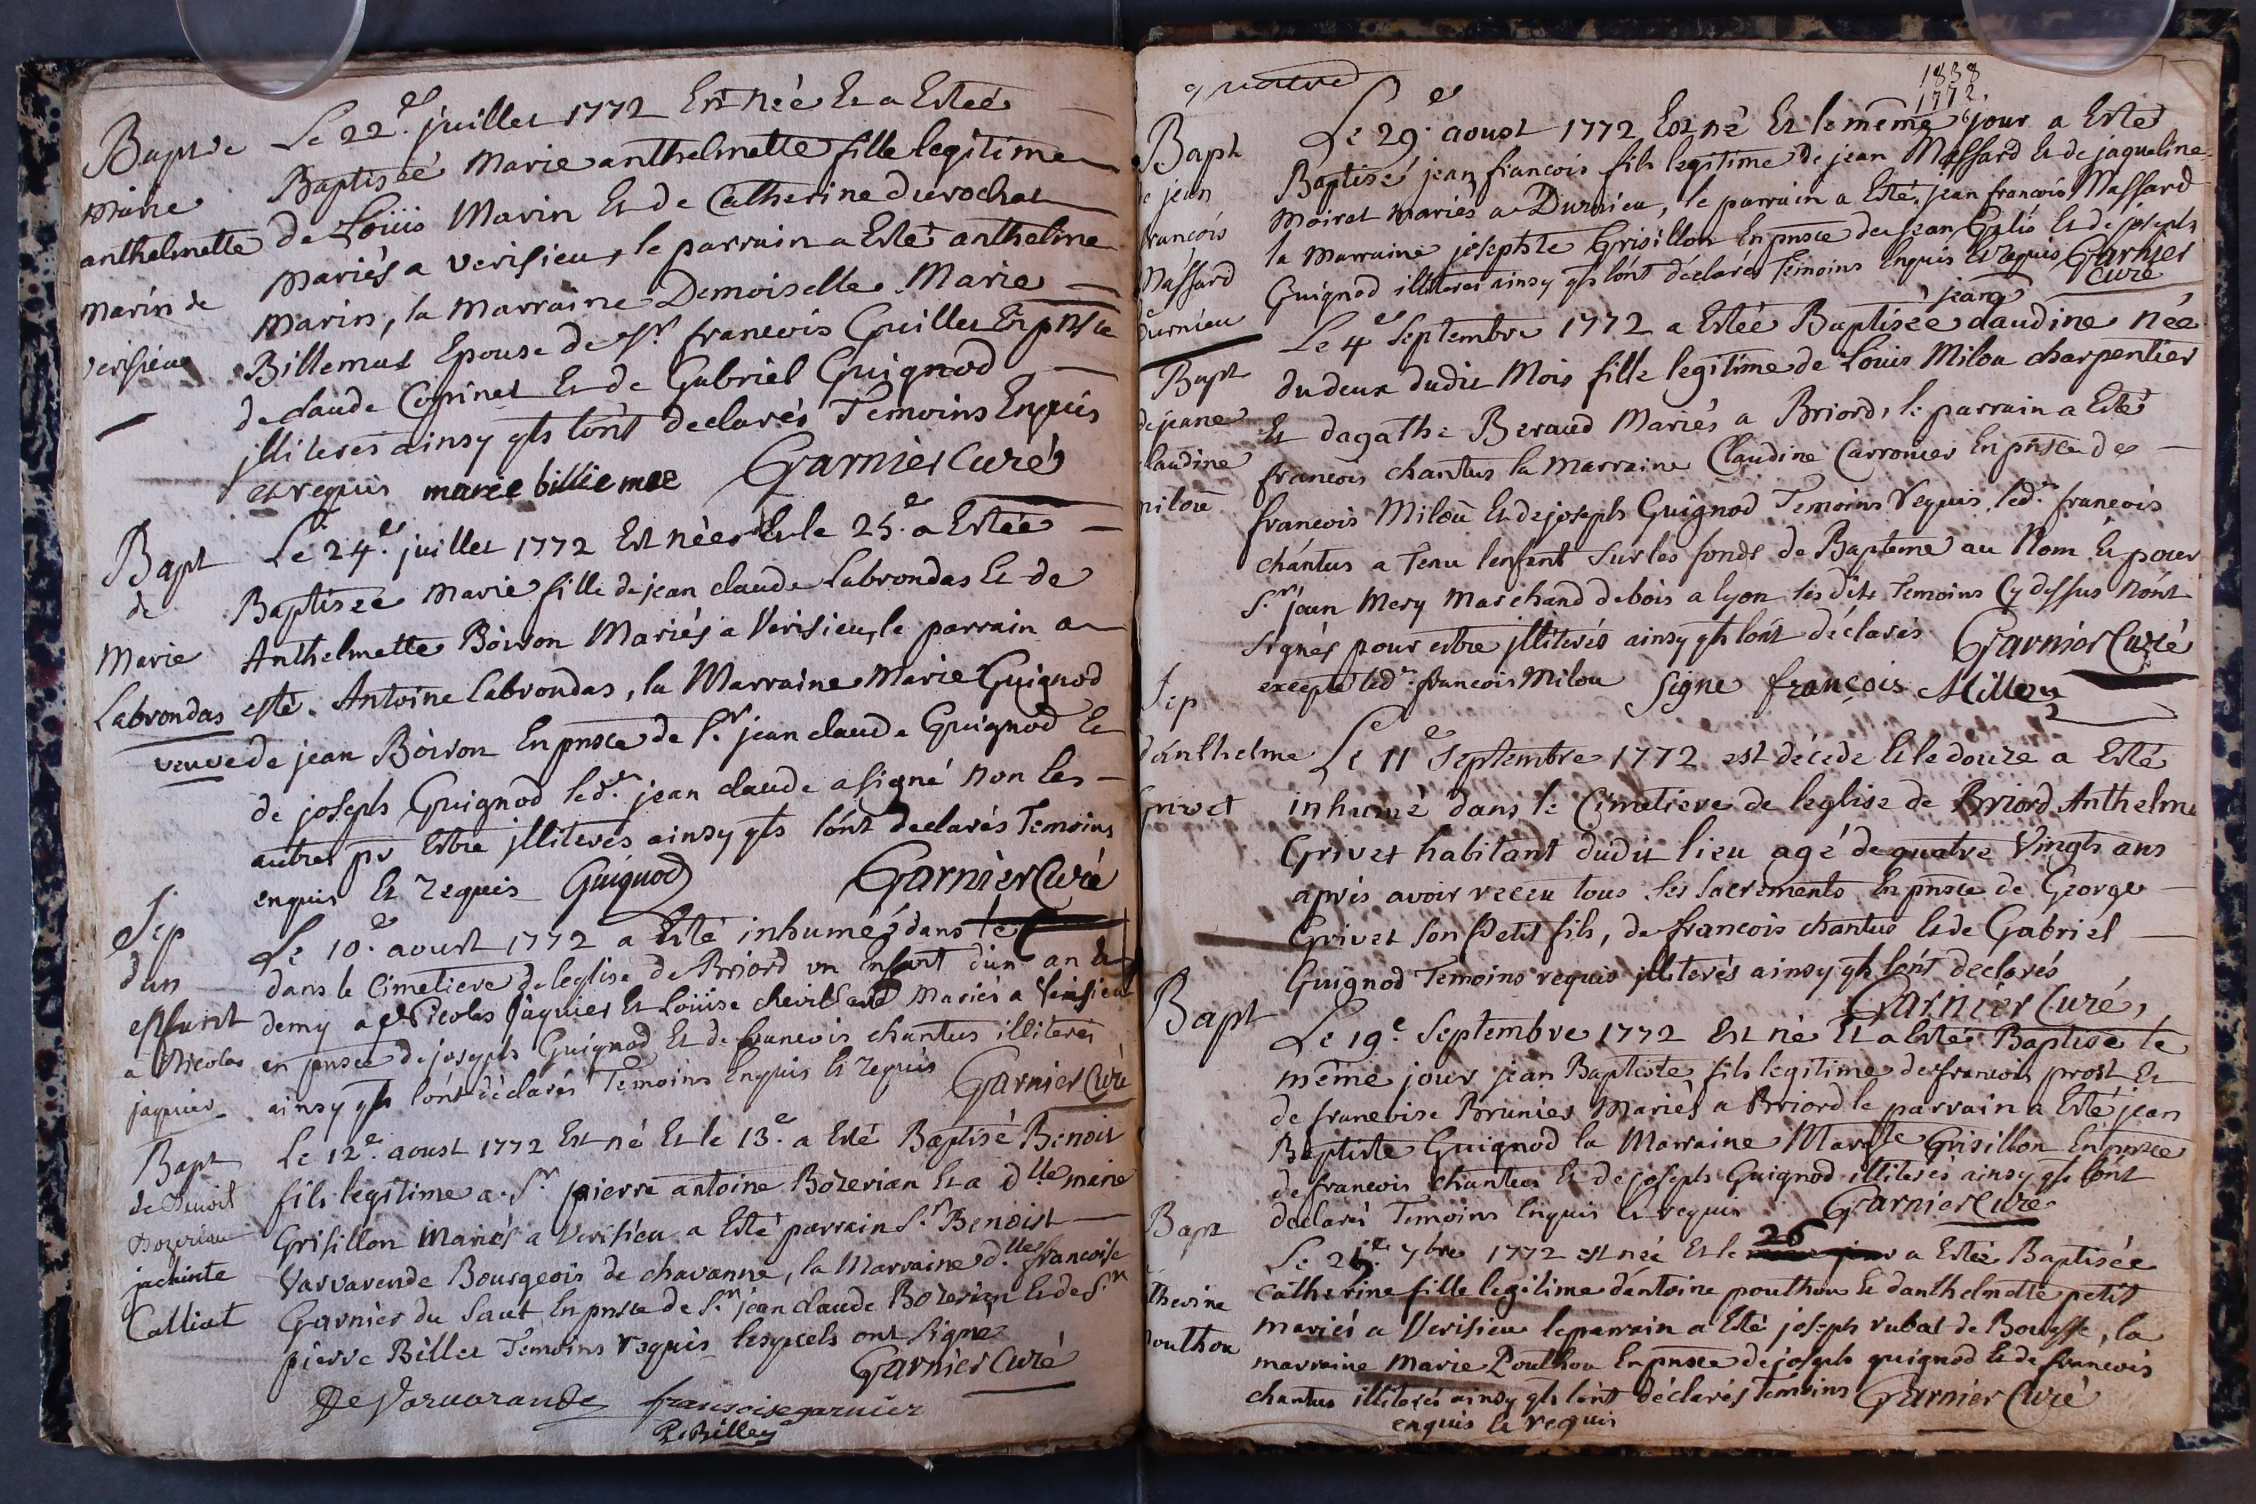 Bapt de
marie
anthelmette
marin de
verisieu
Le 22.e juillet 1772 Est née Et a Esteé
Baptiseé Marie anthelmette fille legitime
de Loüis Marin Et de Catherine durochat
Mariés a verisieu, le parrain a Esté anthelme
Marin, la Marraine Demoiselle Marie
Billemas Epouse de Sr. francois Guillet En pnsce
de claude Copinet Et de Gabriel Guignod
jlliterés ainsy qls lónt declarés Temoins Enquis
et requis marie billiemae Garnier Curé
Bapt
de
Marie
Labrondas
Le 24.e juillet 1772 Est néee Et le 25.e a Esteé
Baptiseé marie fille de jean claude Labrondas Et de
Anthelmette Boiron Mariés a Verisieu, le parrain a
esté Antoine Labrondas, la Marraine Marie Guignod
veuve de jean Boiron En pnsce de Sr. jean claude Guignod Et
de joseph Guignod led.t jean claude a signé non les
autres pr Estre jlliterés ainsy qls lónt declarés Temoins
enquis Et requis Guignod Garnier Curé
Sep
dun
enfant
a Nicolas
jaquier
Le 10.e aoust 1772 a Esté inhumé dans le
dans le Cimetiere de leglise de Briord un Enfant d'un an et
demy a Nicolas jaquier Et Loüise Mariés a Verisieu
en pnsce de joseph Guignod Et de francois chantus illiterés
ainsy qls lónt déclarés Temoins Enquis Et requis Garnier Curé
Bapt
de Benoit
Bozerian
jachinte
Calliat
Le 12.e aoust 1772 Est né Et le 13.e a Esté Baptisé Benoit
fils legitime a Sr. pierre antoine Bozerian Et a dlle marie
Grisillon Mariés a Verisieu a Esté parrain Sr. Benoist
Varvarende Bourgeois de chavanne, la Marraine dlle. francoise
Garnier du Saut En pnsce de Sr. jean claude Bozerian Et de Sr
pierre Billet Temoins requis lesquels ont signé
Garnier Curé
De Varvarande francoise garnier
P. Billey
quatre
1838
1772.
6
Bapt
de jean
francois
Massard
durnieu
Le 29.e aoust 1772 Est né Et le même jour a Esté
Baptisé jean francois fils legitime de jean Massard Et de jaqueline
Moirat mariés a Durnieu, le parrain a Esté jean francois Massard
la Marraine josephte Grisillon En pnsce de jean Et de joseph
Guignod illiterés ainsy qls lónt déclarés Temoins Enquis Et requis Garnier
Curé
Bapt
de jeane
claudine
milou
jeane
Le 4.e Septembre 1772 a Esteé Baptiseé claudine née
du deux dudit Mois fille legitime de Louis Milou charpentier
Et dagathe Beraud Mariés a Briord, le parrain a Esté
francois chantus la Marraine Claudine Carronier En pnsce de
francois Milou Et de joseph Guignod Temoins requis led.t francois
chántus a Tenu lenfant sur les fonds de Bapteme au Nom Et pour
Sr. jean Mery Marchand de bois a lyon lesdits Temoins Cy dessus nónt
signés pour estre jlliterés ainsy qls lónt déclarés Garnier Curé
excepté led.t francois Milou signe françois Millou
Sep
d'anthelme
Grivet
Le 11.e Septembre 1772 est décede Et le douze a Esté
inhumé dans le Cimetiere de leglise de Briord Anthelme
Grivet habitant dudit lieu agé de quatre Vingts ans
aprés avoir receu tous les Sacrements En pnsce de George
Grivet son Petit fils, de francois chantus Et de Gabriel
Guignod Temoins requis jlliterés ainsy qls lónt declarés
Garnier Curé,
Bapt
Le 19.e Septembre 1772 Est né Et a Esté Baptisé le
même jour jean Baptiste fils legitime de francois prost Et
de francoise Brunier Mariés a Briord le parrain a Esté jean
Baptiste Guignod la Marraine Margte Grisillon En pnsce
de francois chantus Et de joseph Guignod illiterés ainsy qls lónt
declarés Temoins Enquis Et requis Garnier Curé
Bapt
Catherine
Pouthou
Le 25.e 7bre 1772 est née Et le 26 a Esteé Baptiseé
Catherine fille legitime dántoine pouthou Et danthelmette petit
mariés a Verisieu le parrain a Esté joseph rubat de Bouesse, la
marraine Marie Pouthou En pnsce de joseph guignod Et de francois
chantus illiterés ainsy qls lónt déclarés Temoins Garnier Curé
enquis Et requis